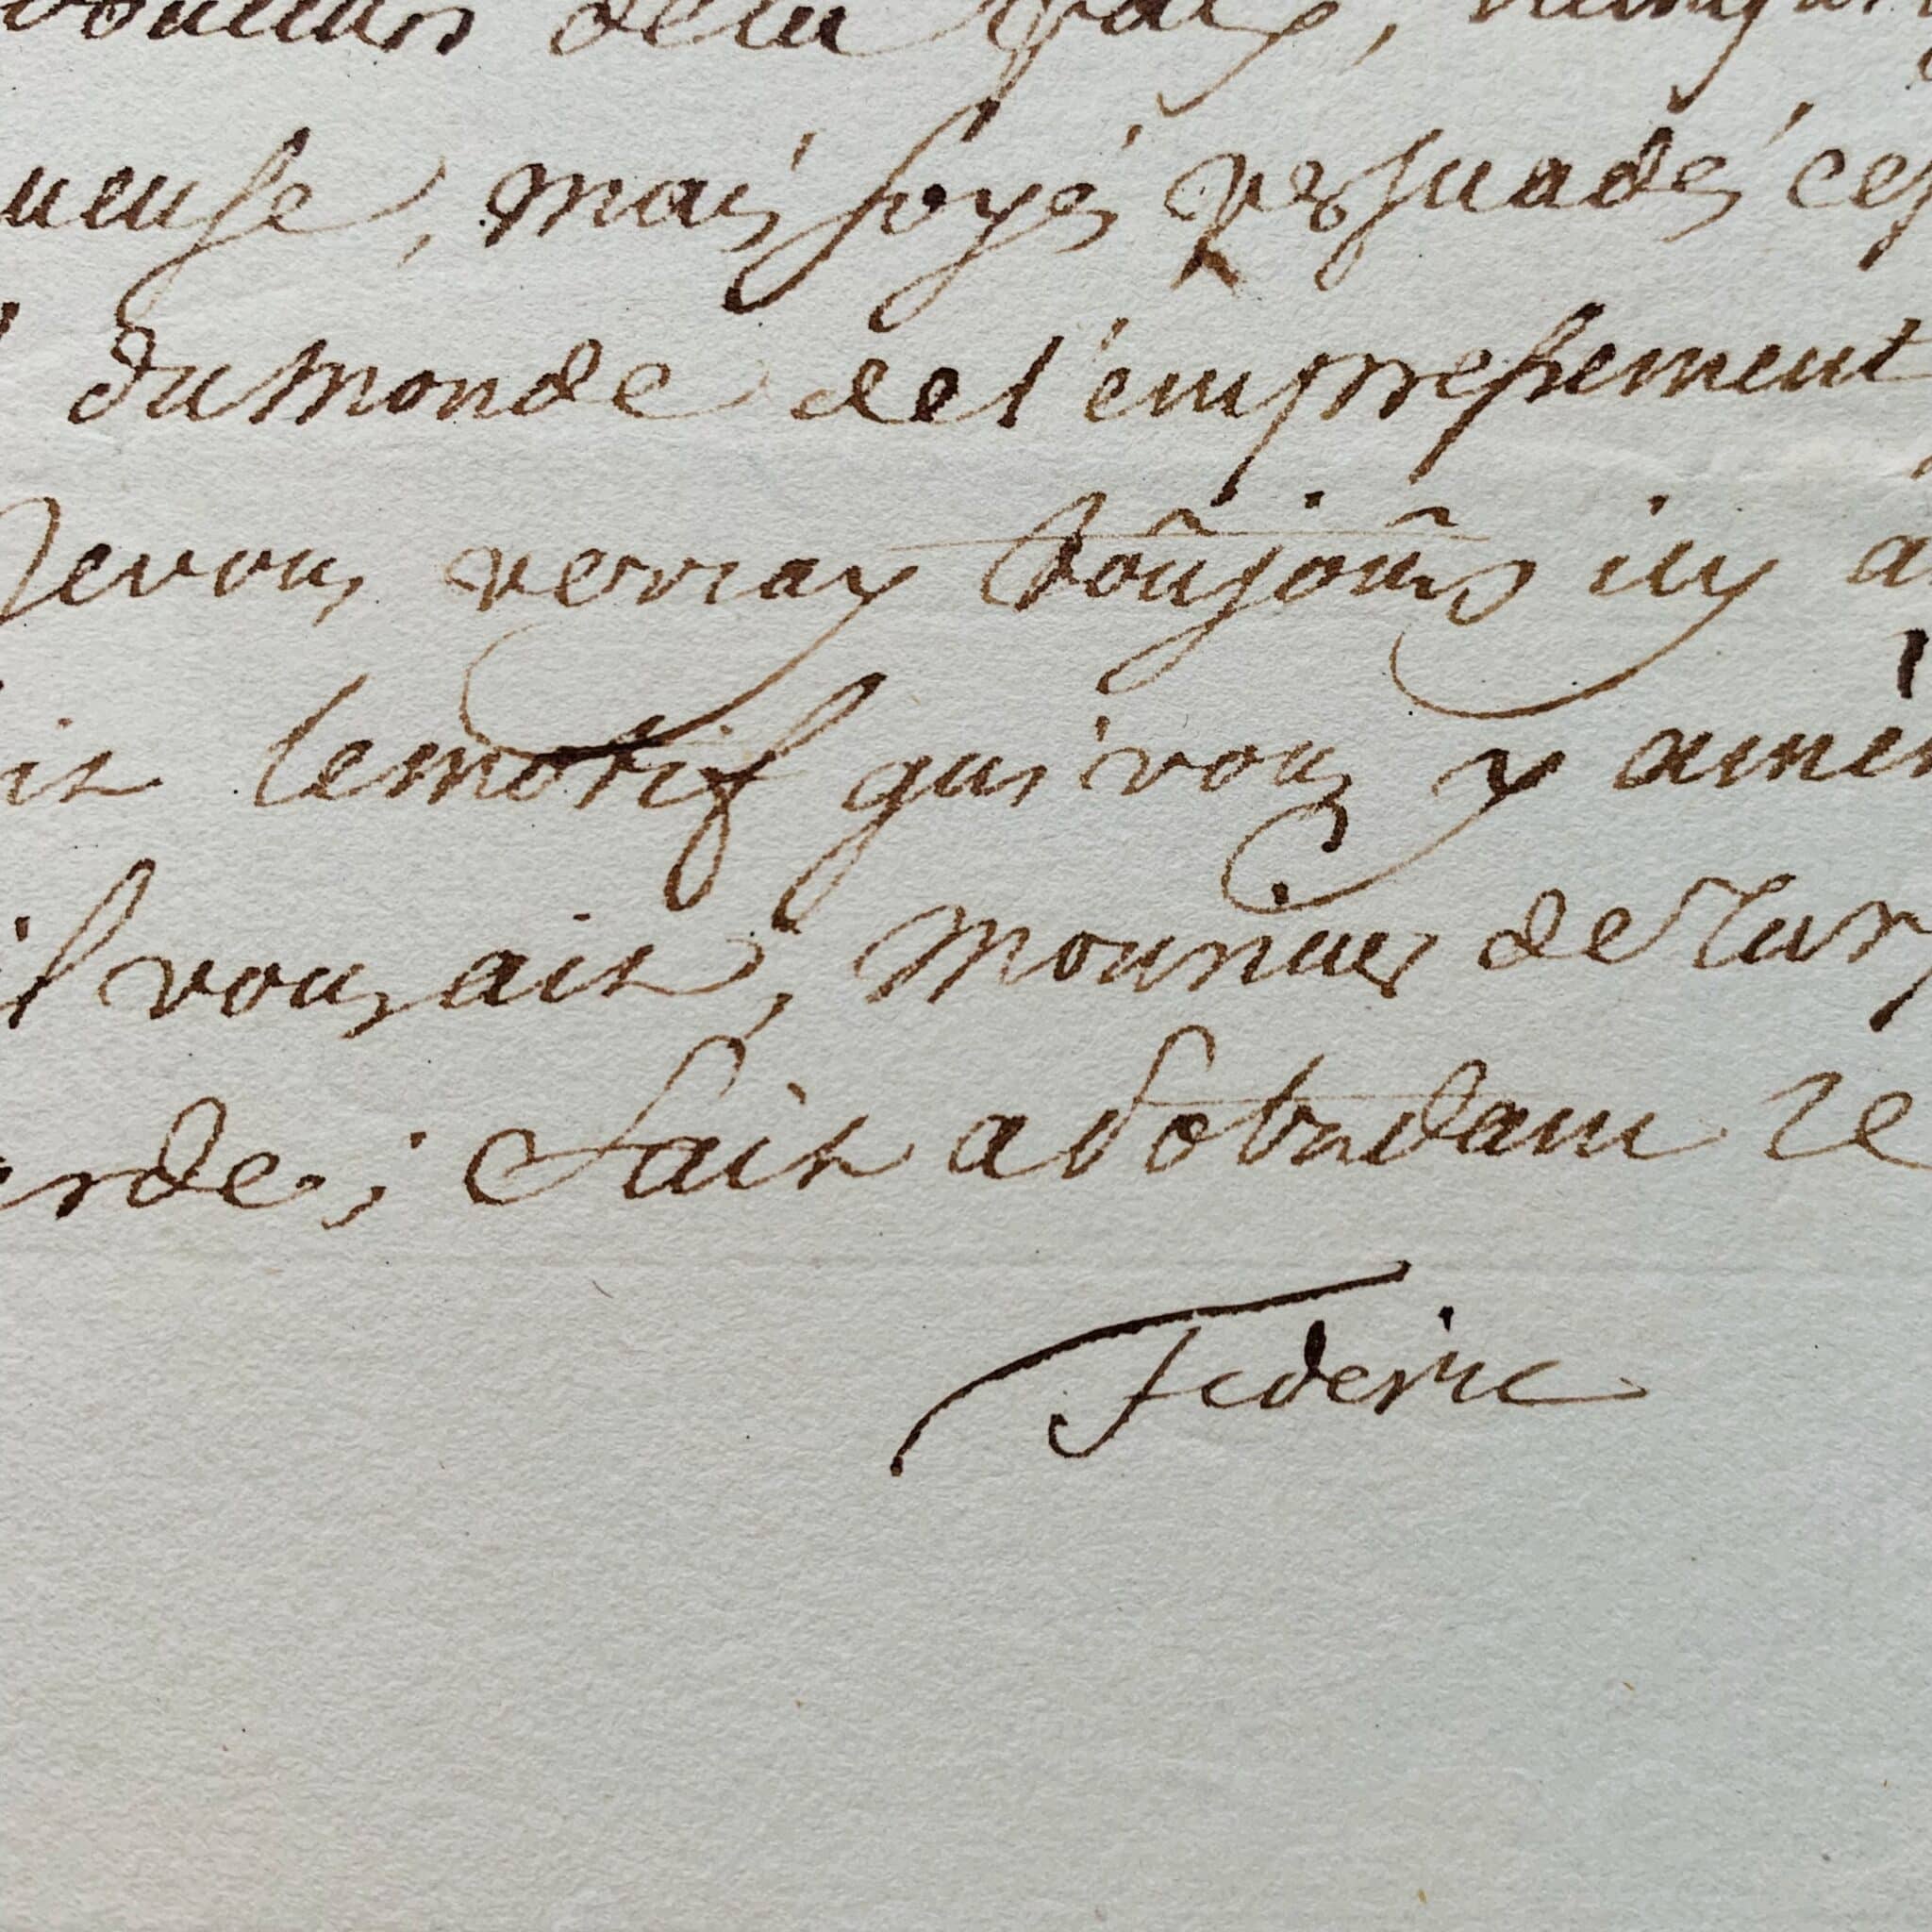 douceurs de la paix,
ueuse, mais soyés persuadé, ces
du monde de l'empressement
Je vous verray toûjoûrs icy a
it le motif qui vous y amèn
il vous ait, Monsieur de Tur
arde; Fait a Potsdam le
Federic